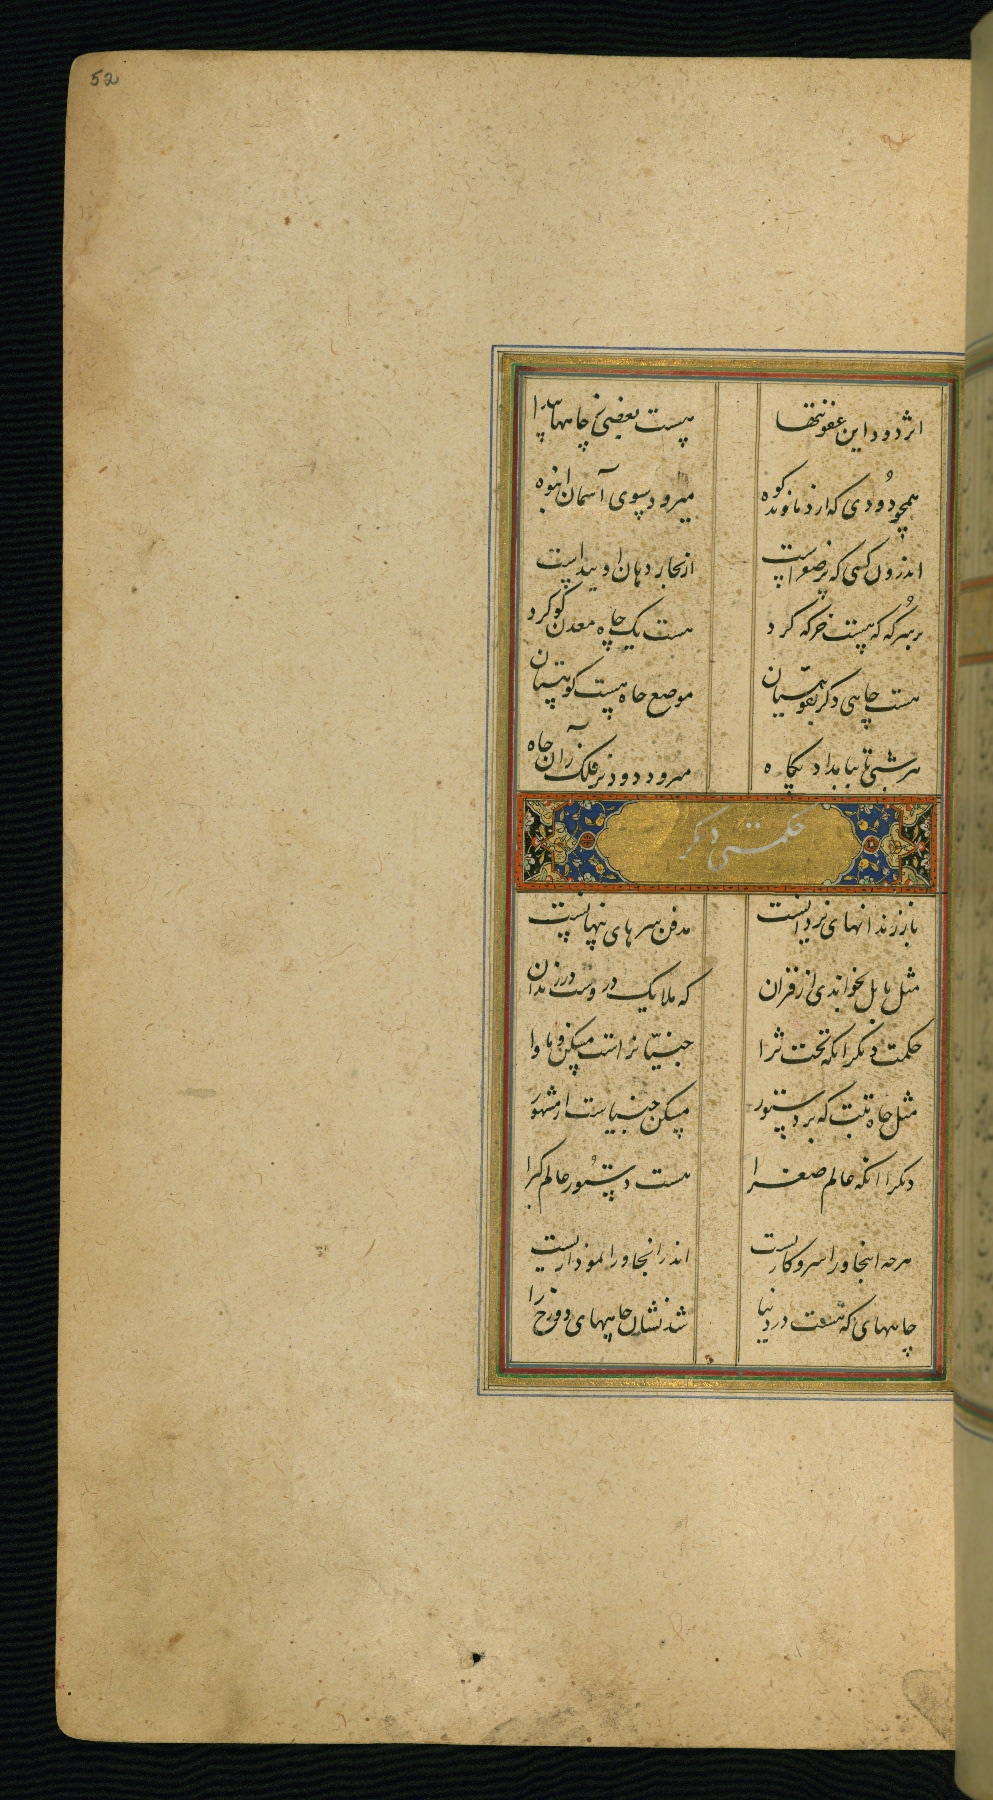 52
اثر دود این عفونتها هست بعضی ز چاهها پیدا
همچو دودی که از دماوند کوه میرود سوی آسمان انبوه
اندرون کسی که پر صفراست از بخار دهان او پیداست
هست یک چاه معدن گوگرد
هست چاهی دگر بقوهستان موضع چاه هست کوهستان
هر شبی تا ببامداد پگاه میرود دود بر فلک زان چاه
حکمتی دگر
باز زندانهای یزدانست مدفن سرهای پنهانست
مثل بابل بخواندی از قرآن که ملایک دروست در زندان
حکمت دیگر آنکه تحت ثرا جنیانراست مسکن و ماوا
مثل چاه تبت که بر دستور مسکن جنیاست از مشهور
دیگر آنکه عالم صغرا هست دستور عالم کبرا
هرچه اینجا ورا سر و کاریست اندر آنجا ورا نموداریست
چاههای که هست در دنیا شد نشان چاههای دوزخ را